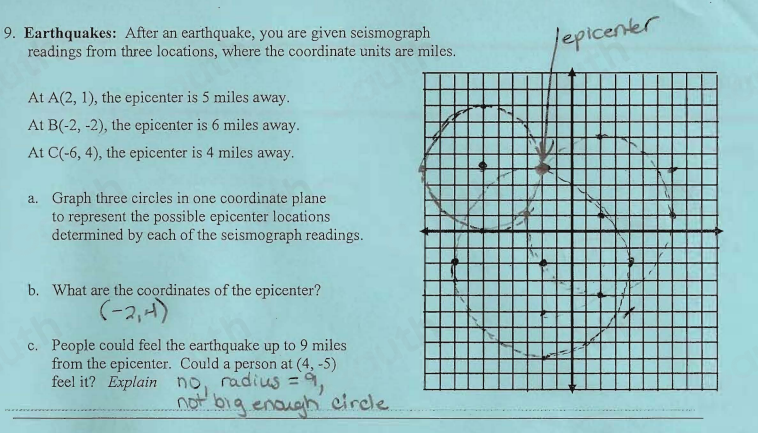 epicenter
9. Earthquakes: After an earthquake, you are given seismograph
readings from three locations, where the coordinate units are miles.
At A(2, 1), the epicenter is 5 miles away.
At B(-2, -2), the epicenter is 6 miles away.
At C(-6, 4), the epicenter is 4 miles away.
a. Graph three circles in one coordinate plane
to represent the possible epicenter locations
determined by each of the seismograph readings.
b. What are the coordinates of the epicenter?
(-2,4)
c. People could feel the earthquake up to 9 miles
from the epicenter. Could a person at (4, -5)
feel it? Explain no, radius = 9,
not big enough circle